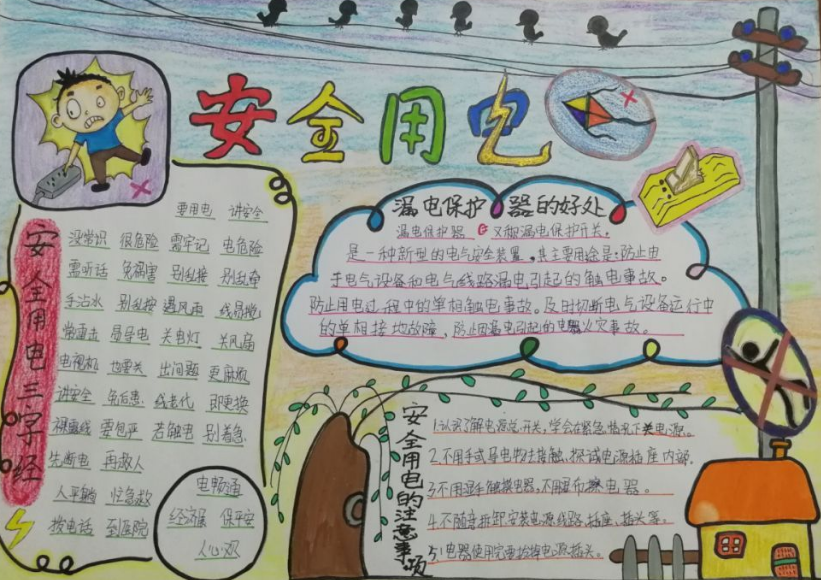 安全用电
安全用电三字经
要用电 讲安全
没常识 很危险 需牢记 电危险
需听话 免祸害 别乱接 别乱牵
手沾水 别乱按 遇风雨 线易搅
常雷击 易导电 关电灯 关风扇
电视机 也要关 出问题 更麻烦
讲安全 免后患 线老代 即更换
裸露线 要包严 若触电 别着急
先断电 再救人
人平躺 忙急救
拨电话 到医院
电畅通
经济 保平安
人心欢
漏电保护器的好处
漏电保护器 又称漏电保护开关。
是一种新型的电气安全装置,其主要用途是:防止由
于电气设备和电气线路漏电引起的触电事故。
防止用电过程中的单相触电事故。及时切断电气设备运行中
的单相接地故障,防止因漏电引起的电器火灾事故。
安全用电的注意事项
1.认识了解电源总开关,学会在紧急情况下关电源。
2.不用手或导电物去接触、探试电源插座内部.
3.不用湿手触摸电器,不用湿布擦电器。
4.不随意拆卸、安装电源线路、插座、插头等。
5.电器使用完要拔掉电源插头。